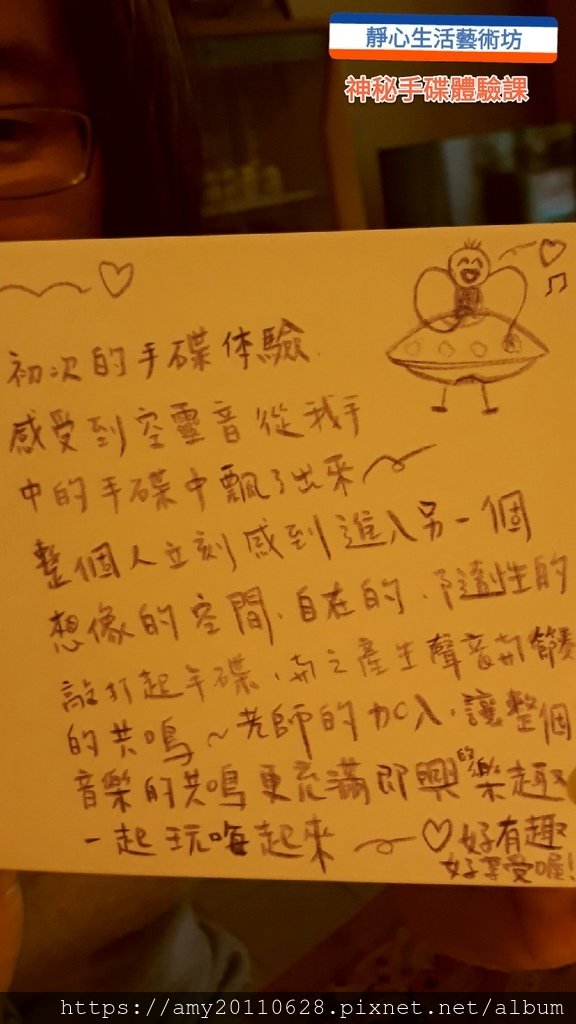 靜心生活藝術坊
神秘手碟體驗課
初次的手碟体驗
感受到空靈音從我手
中的手碟中飄了出來
整個人立刻感到進入另一個
想像的空間、自在的、隨性的
敲打起手碟、產生聲音
的共鳴~老師的加入,讓整個
音樂的共鳴更充滿即興的樂趣
一起玩嗨起來 好有趣
好享受喔!
https://amy20110628.pixnet.net/album